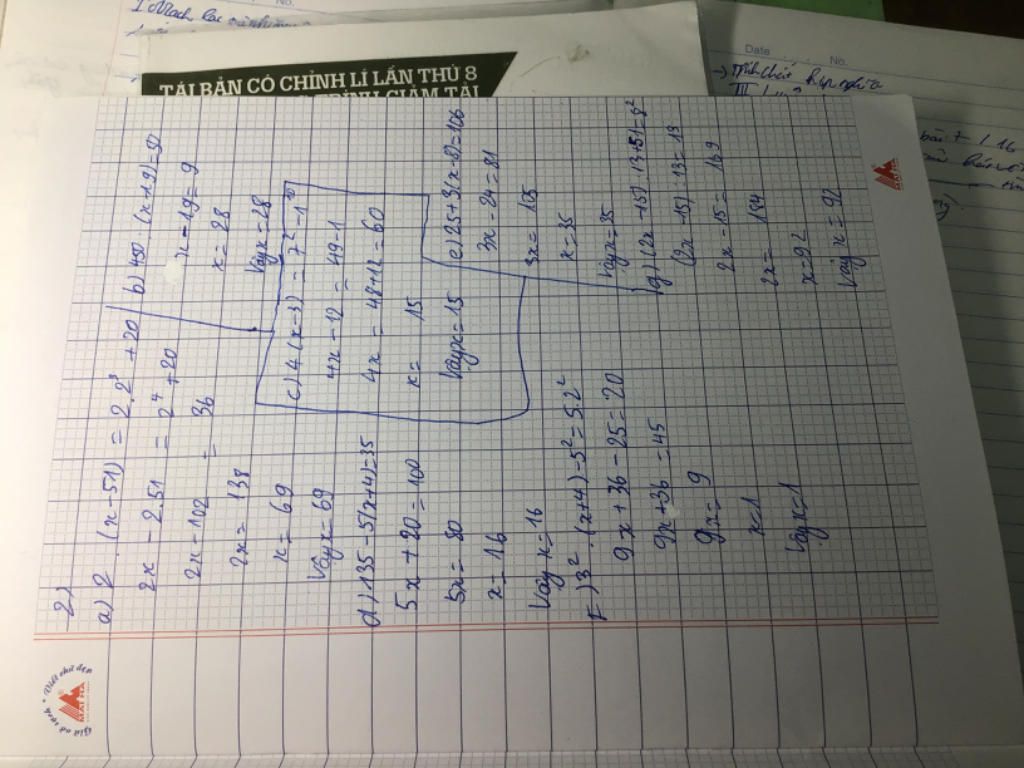 2)
a) 2 . (x-51) = 2.2³ + 20
2x - 2.51 = 2⁴ + 20
2x - 102 = 36
2x = 138
x = 69
Vậy x = 69
b) 450 : (x-19) = 50
x - 19 = 9
x = 28
Vậy x = 28
c) 4(x-3) = 7² - 1¹⁰
4x - 12 = 49 - 1
4x = 48+12 = 60
x = 15
Vậy x = 15
d) 135 - 5(x+4) = 35
5x + 20 = 100
5x = 80
x = 16
Vậy x = 16
e) 25+3(x-8) = 106
3x - 24 = 81
3x = 105
x = 35
Vậy x = 35
f) 3² . (x+4) - 5² = 5.2²
9x + 36 - 25 = 20
9x + 36 = 45
9x = 9
x = 1
Vậy x = 1
g) (2x - 15) : 13+51 = 8²
(2x - 15) : 13 = 13
2x - 15 = 169
2x = 184
x = 92
Vậy x = 92
TÁI BẢN CÓ CHỈNH LÍ LẦN THỨ 8
Giữ vở sạch * Viết chữ đẹp
Date
No.